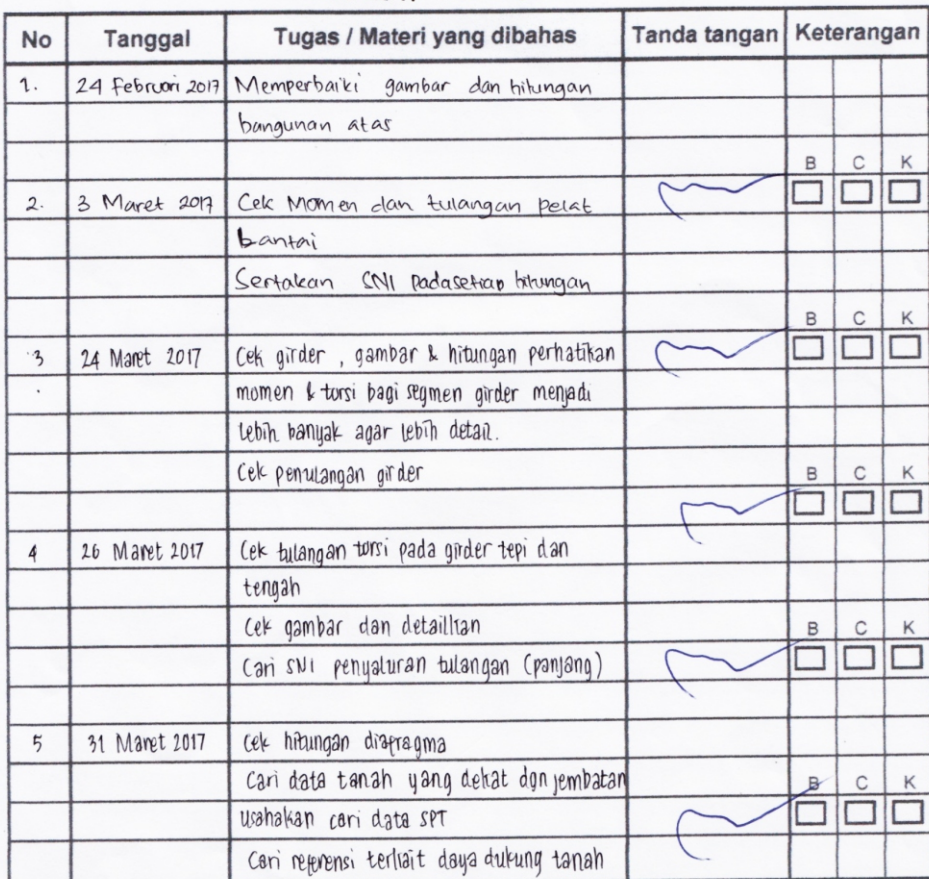 No Tanggal Tugas / Materi yang dibahas Tanda tangan Keterangan
1. 24 Februari 2017 Memperbaiki gambar dan hitungan
bangunan atas
B C K
2. 3 Maret 2017 Cek Momen dan tulangan pelat
Lantai
Sertakan SNI pada setiap hitungan
B C K
3 24 Maret 2017 Cek girder, gambar & hitungan perhatikan
momen & torsi bagi segmen girder menjadi
lebih banyak agar lebih detail.
Cek penulangan girder B C K
4 26 Maret 2017 Cek tulangan torsi pada girder tepi dan
tengah
Cek gambar dan detailkan B C K
Cari SNI penyaluran tulangan (panjang)
5 31 Maret 2017 Cek hitungan diafragma
Cari data tanah yang dekat dgn jembatan B C K
usahakan cari data SPT
Cari referensi terkait daya dukung tanah